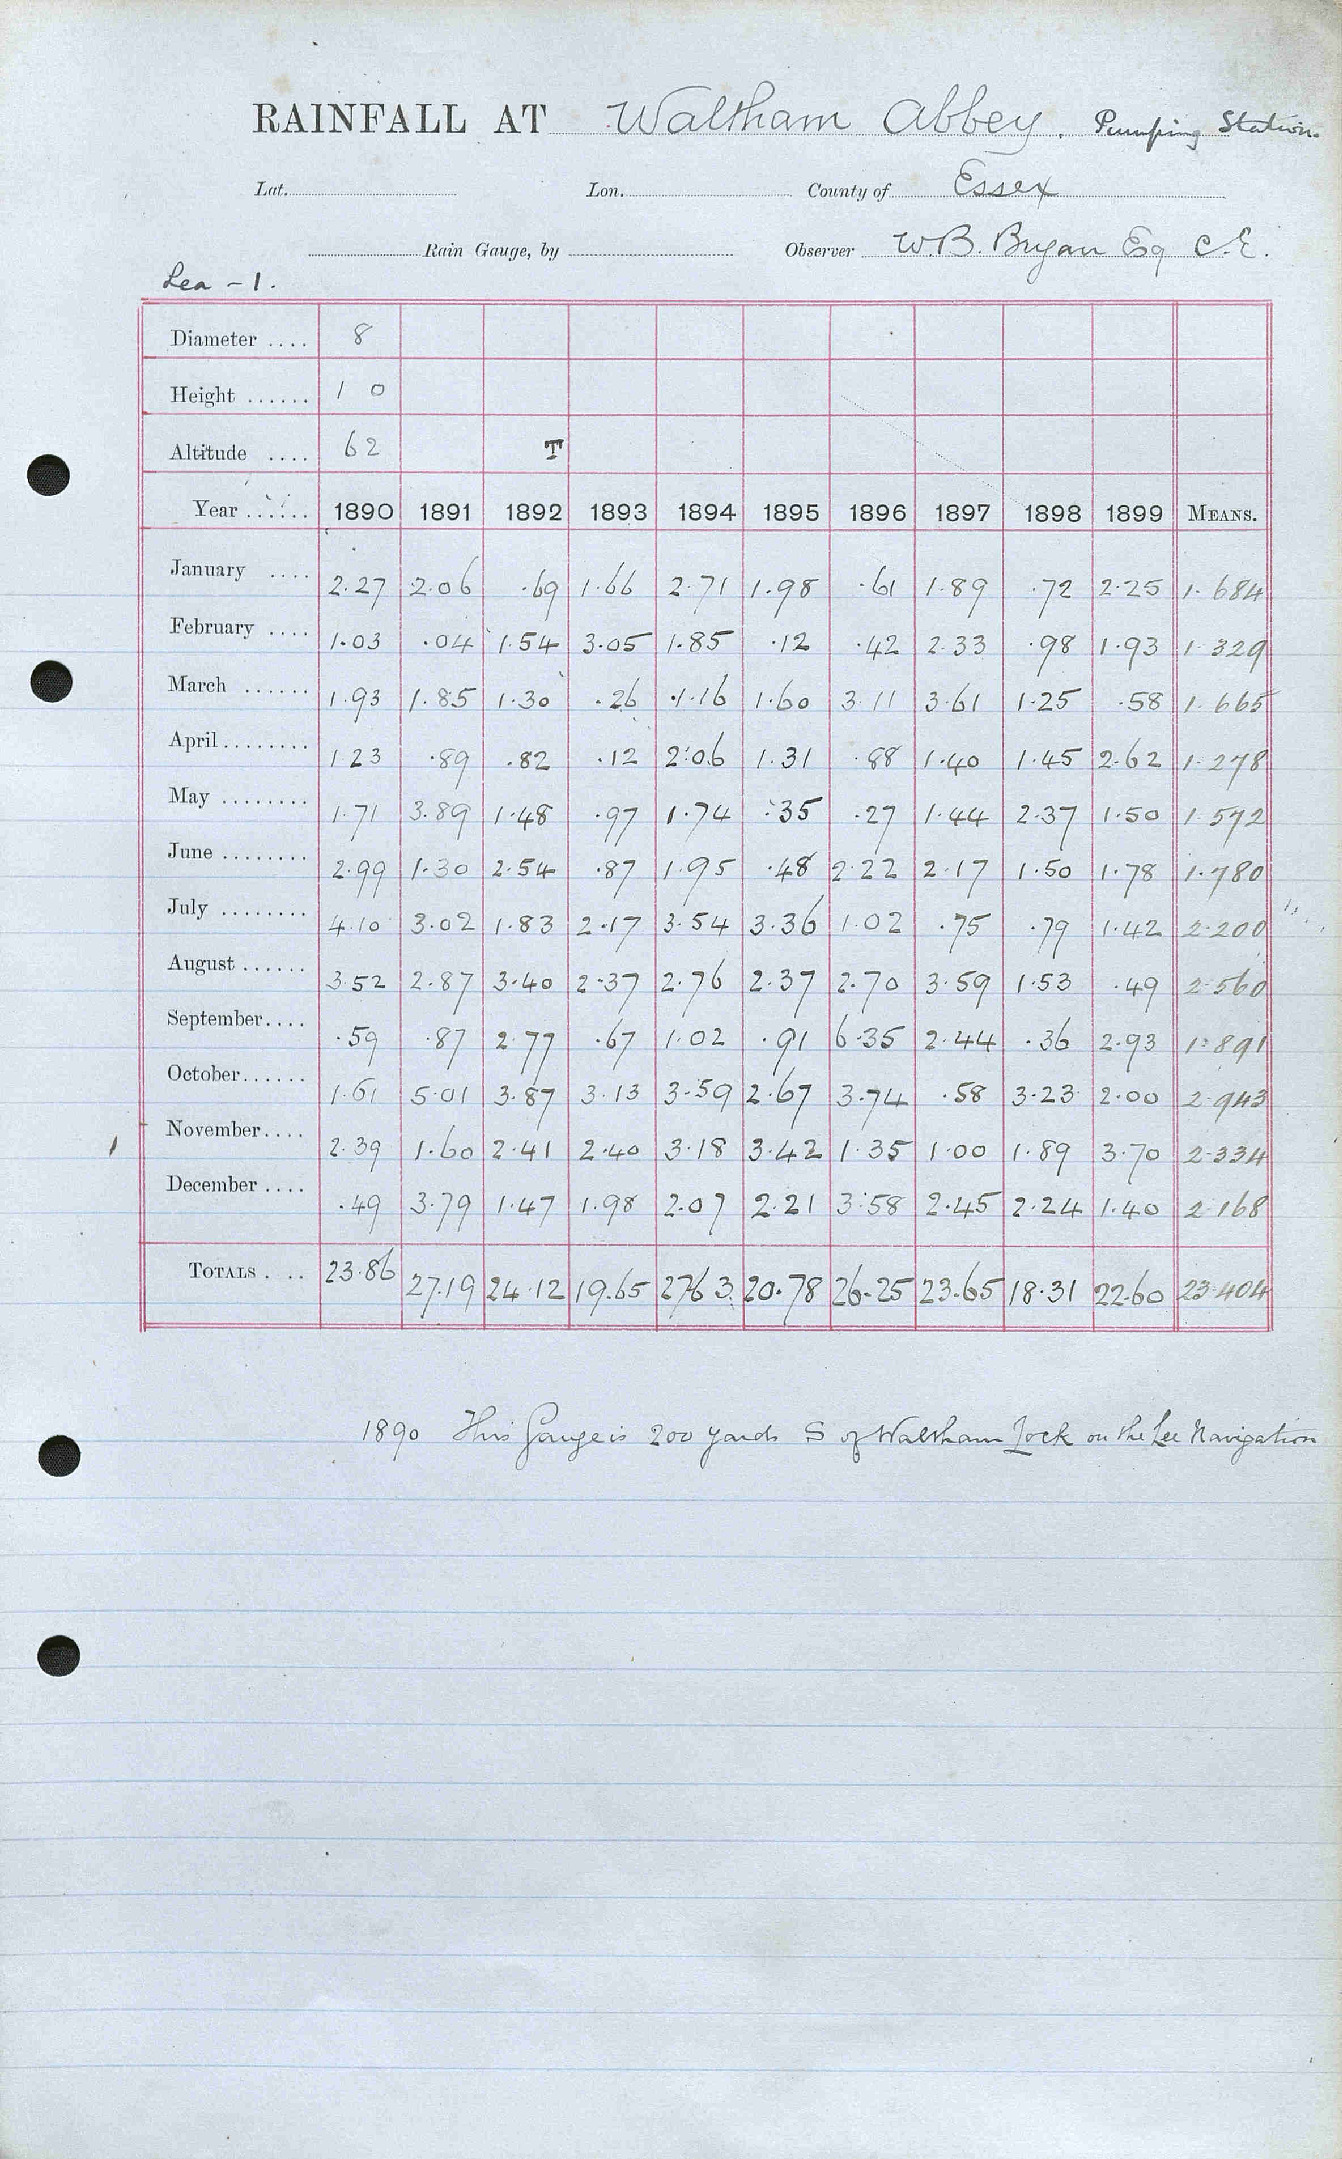 RAINFALL AT Waltham Abbey. Pumping Station.
Lat. Lon. County of Essex
Rain Gauge, by Observer W.B. Bryan Esq C.E.
Lea - 1.
Diameter .... 8
Height ...... 1 0
Altitude .... 62 T
Year ...... 1890 1891 1892 1893 1894 1895 1896 1897 1898 1899 MEANS.
January .... 2.27 2.06 .69 1.66 2.71 1.98 .61 1.89 .72 2.25 1.684
February .... 1.03 .04 1.54 3.05 1.85 .12 .42 2.33 .98 1.93 1.329
March ...... 1.93 1.85 1.30 .26 1.16 1.60 3.11 3.61 1.25 .58 1.665
April ........ 1.23 .89 .82 .12 2.06 1.31 .88 1.40 1.45 2.62 1.278
May ........ 1.71 3.89 1.48 .97 1.74 .35 .27 1.44 2.37 1.50 1.572
June ........ 2.99 1.30 2.54 .87 1.95 .48 2.22 2.17 1.50 1.78 1.780
July ........ 4.10 3.02 1.83 2.17 3.54 3.36 1.02 .75 .79 1.42 2.200
August ...... 3.52 2.87 3.40 2.37 2.76 2.37 2.70 3.59 1.53 .49 2.560
September .... .59 .87 2.77 .67 1.02 .91 6.35 2.44 .36 2.93 1.891
October ...... 1.61 5.01 3.87 3.13 3.59 2.67 3.74 .58 3.23 2.00 2.943
November .... 2.39 1.60 2.41 2.40 3.18 3.42 1.35 1.00 1.89 3.70 2.334
December .... .49 3.79 1.47 1.98 2.07 2.21 3.58 2.45 2.24 1.40 2.168
TOTALS . .. 23.86 27.19 24.12 19.65 27.63 20.78 26.25 23.65 18.31 22.60 23.404
1890 This Gauge is 200 yards S of Waltham Lock on the Lee Navigation